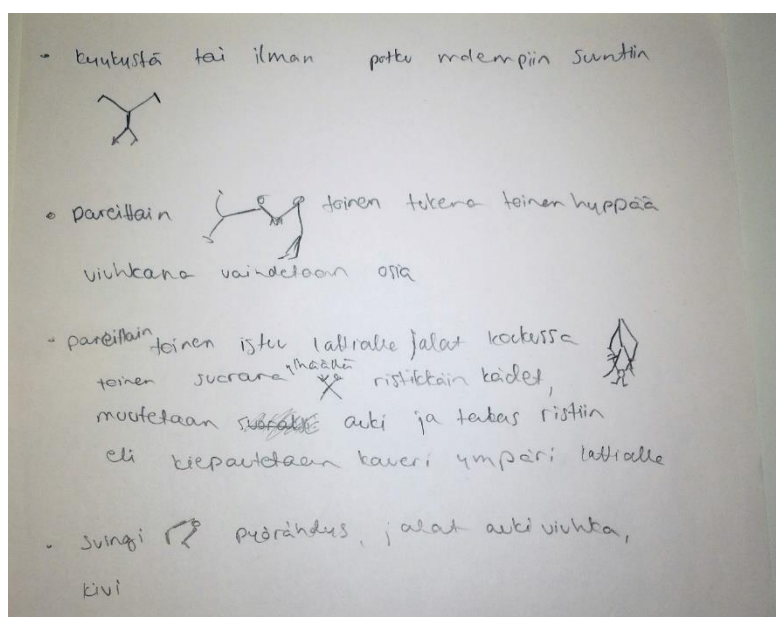 - kyykystä tai ilman potku molempiin suuntiin
• pareittain toinen tukena toinen hyppää
viuhkana vaihdelaan osia
- pareittain toinen istuu lattialle jalat koukussa
toinen suorana maassa ristikkäin kädet,
muutetaan auki ja takas ristiin
eli kiepautetaan kaveri ympäri lattialle
- svingi pyörähdys, jalat auki viuhka,
kivi